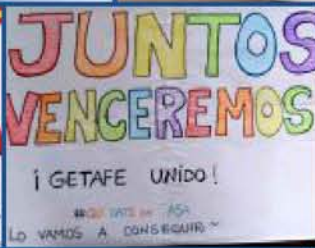 JUNTOS
VENCEREMOS
¡ GETAFE UNIDO !
LO VAMOS A CONSEGUIR~